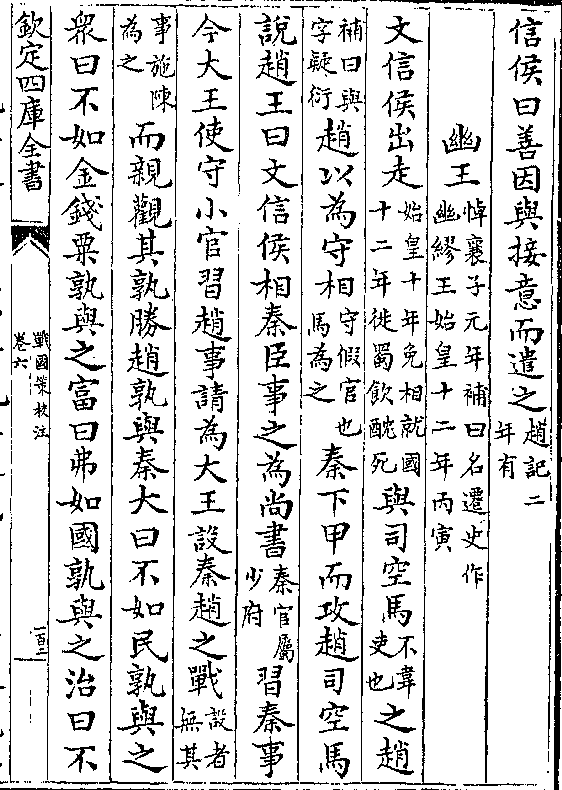 信侯曰善因與接意而遣之趙記二年有
幽王悼襄子元年補曰名遷史作幽繆王始皇十二年丙寅
文信侯出走始皇十年免相就國十二年徙蜀飲酖死與司空馬不韋吏也之趙
補曰與字疑衍趙以為守相守假官也馬為之秦下甲而攻趙司空馬
說趙王曰文信侯相秦臣事之為尚書秦官屬少府習秦事
今大王使守小官習趙事請為大王設秦趙之戰設者無其
事施陳為之而親觀其孰勝趙孰與秦大曰不如民孰與之
衆曰不如金錢粟孰與之富曰弗如國孰與之治曰不
欽定四庫全書
戰國策校注
卷六
一百二